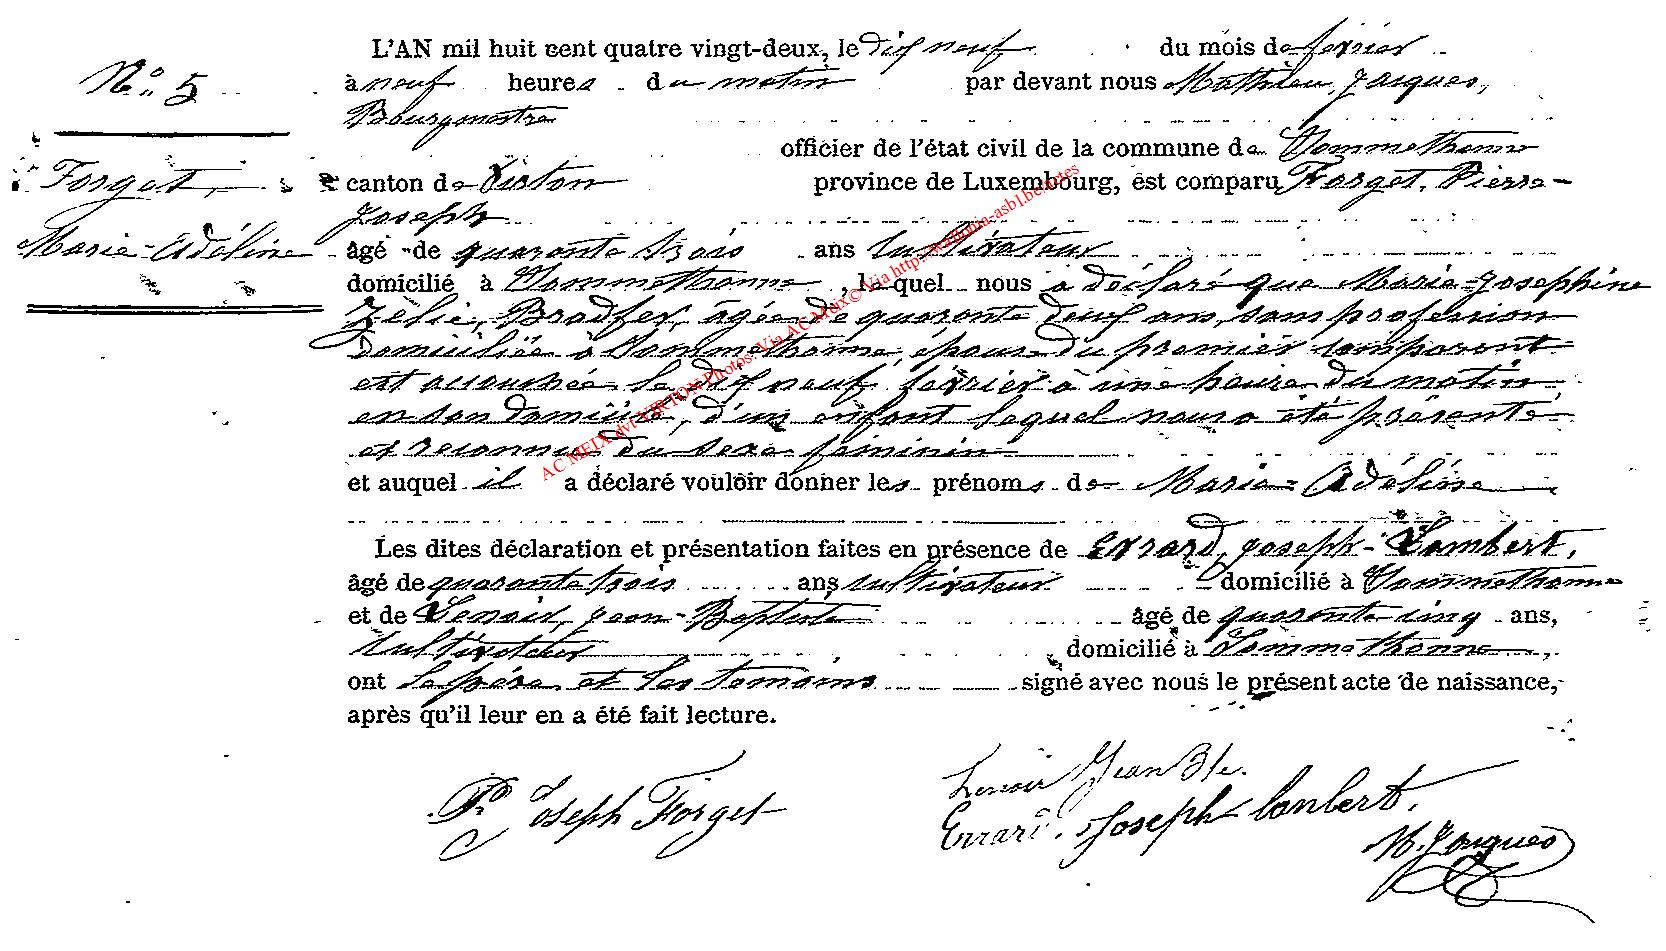 L'AN mil huit cent quatre vingt-deux, le dix neuf du mois de février
N° 5
à neuf heures du matin par devant nous Mathieu, Jacques,
Bourgmestre
officier de l'état civil de la commune de Sommethonne
Forget,
canton de Virton province de Luxembourg, est comparu Forget, Pierre-
Joseph
Marie-Adéline
âgé de quarante trois ans cultivateur
domicilié à Sommethonne, lequel nous a déclaré que Marie-Josephine
Zélie, Bradfer, âgée de quarante deux ans, sans profession
domiciliée à Sommethonne, épouse du premier comparant
est accouchée le dix neuf février à une heure du matin
en son domicile, d'un enfant lequel nous a été présenté
et reconnu du sexe féminin
et auquel il a déclaré vouloir donner les prénoms de Marie-Adéline
Les dites déclaration et présentation faites en présence de Evrard, Joseph-Lambert,
âgé de quarante trois ans cultivateur domicilié à Sommethonne
et de Lenoir, Jean-Baptiste âgé de quarante cinq ans,
cultivateur domicilié à Sommethonne,
ont le père et les temoins signé avec nous le présent acte de naissance,
après qu'il leur en a été fait lecture.
Lenoir Jean Bte.
P. Joseph Forget
Evrard. Joseph Lambert.
M. Jacques